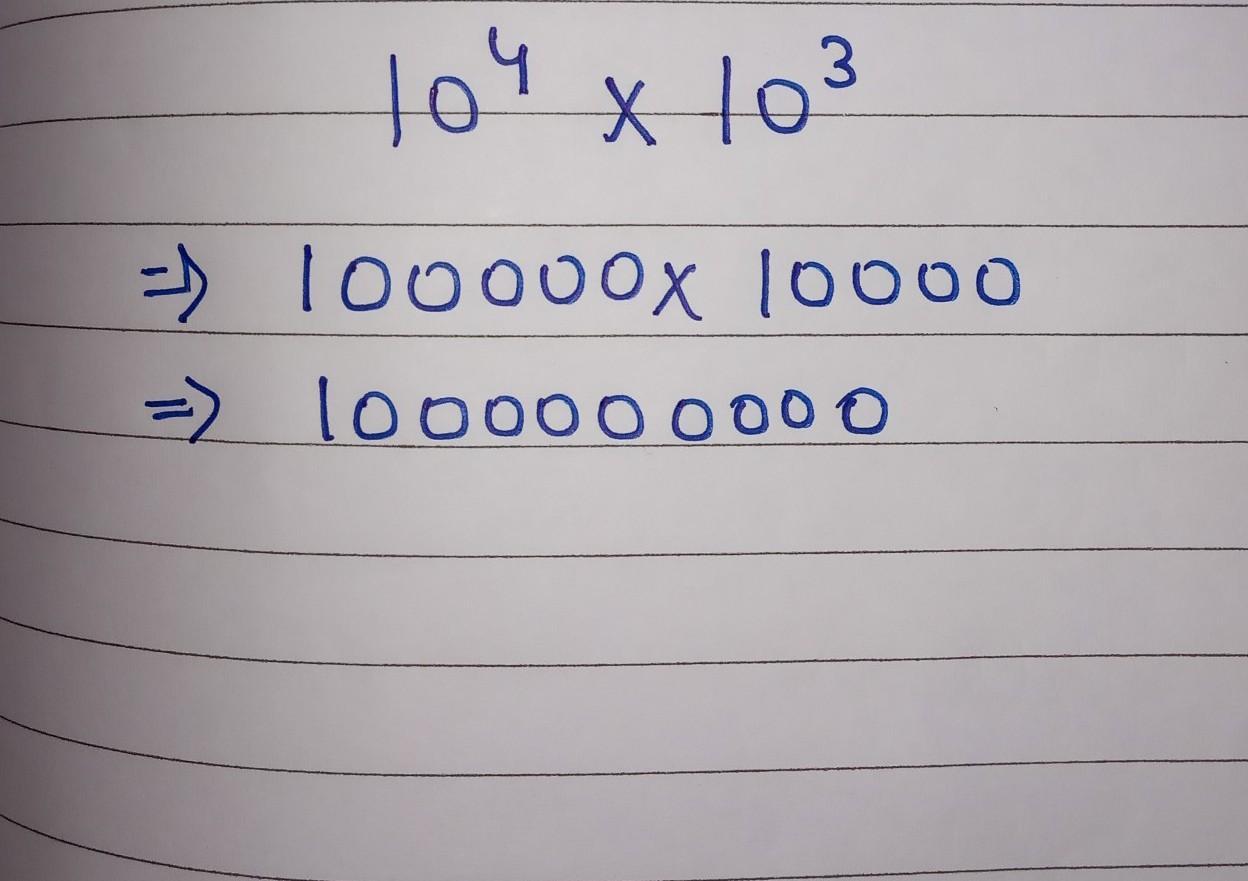 10⁴ x 10³
=> 100000x 10000
=> 1000000000